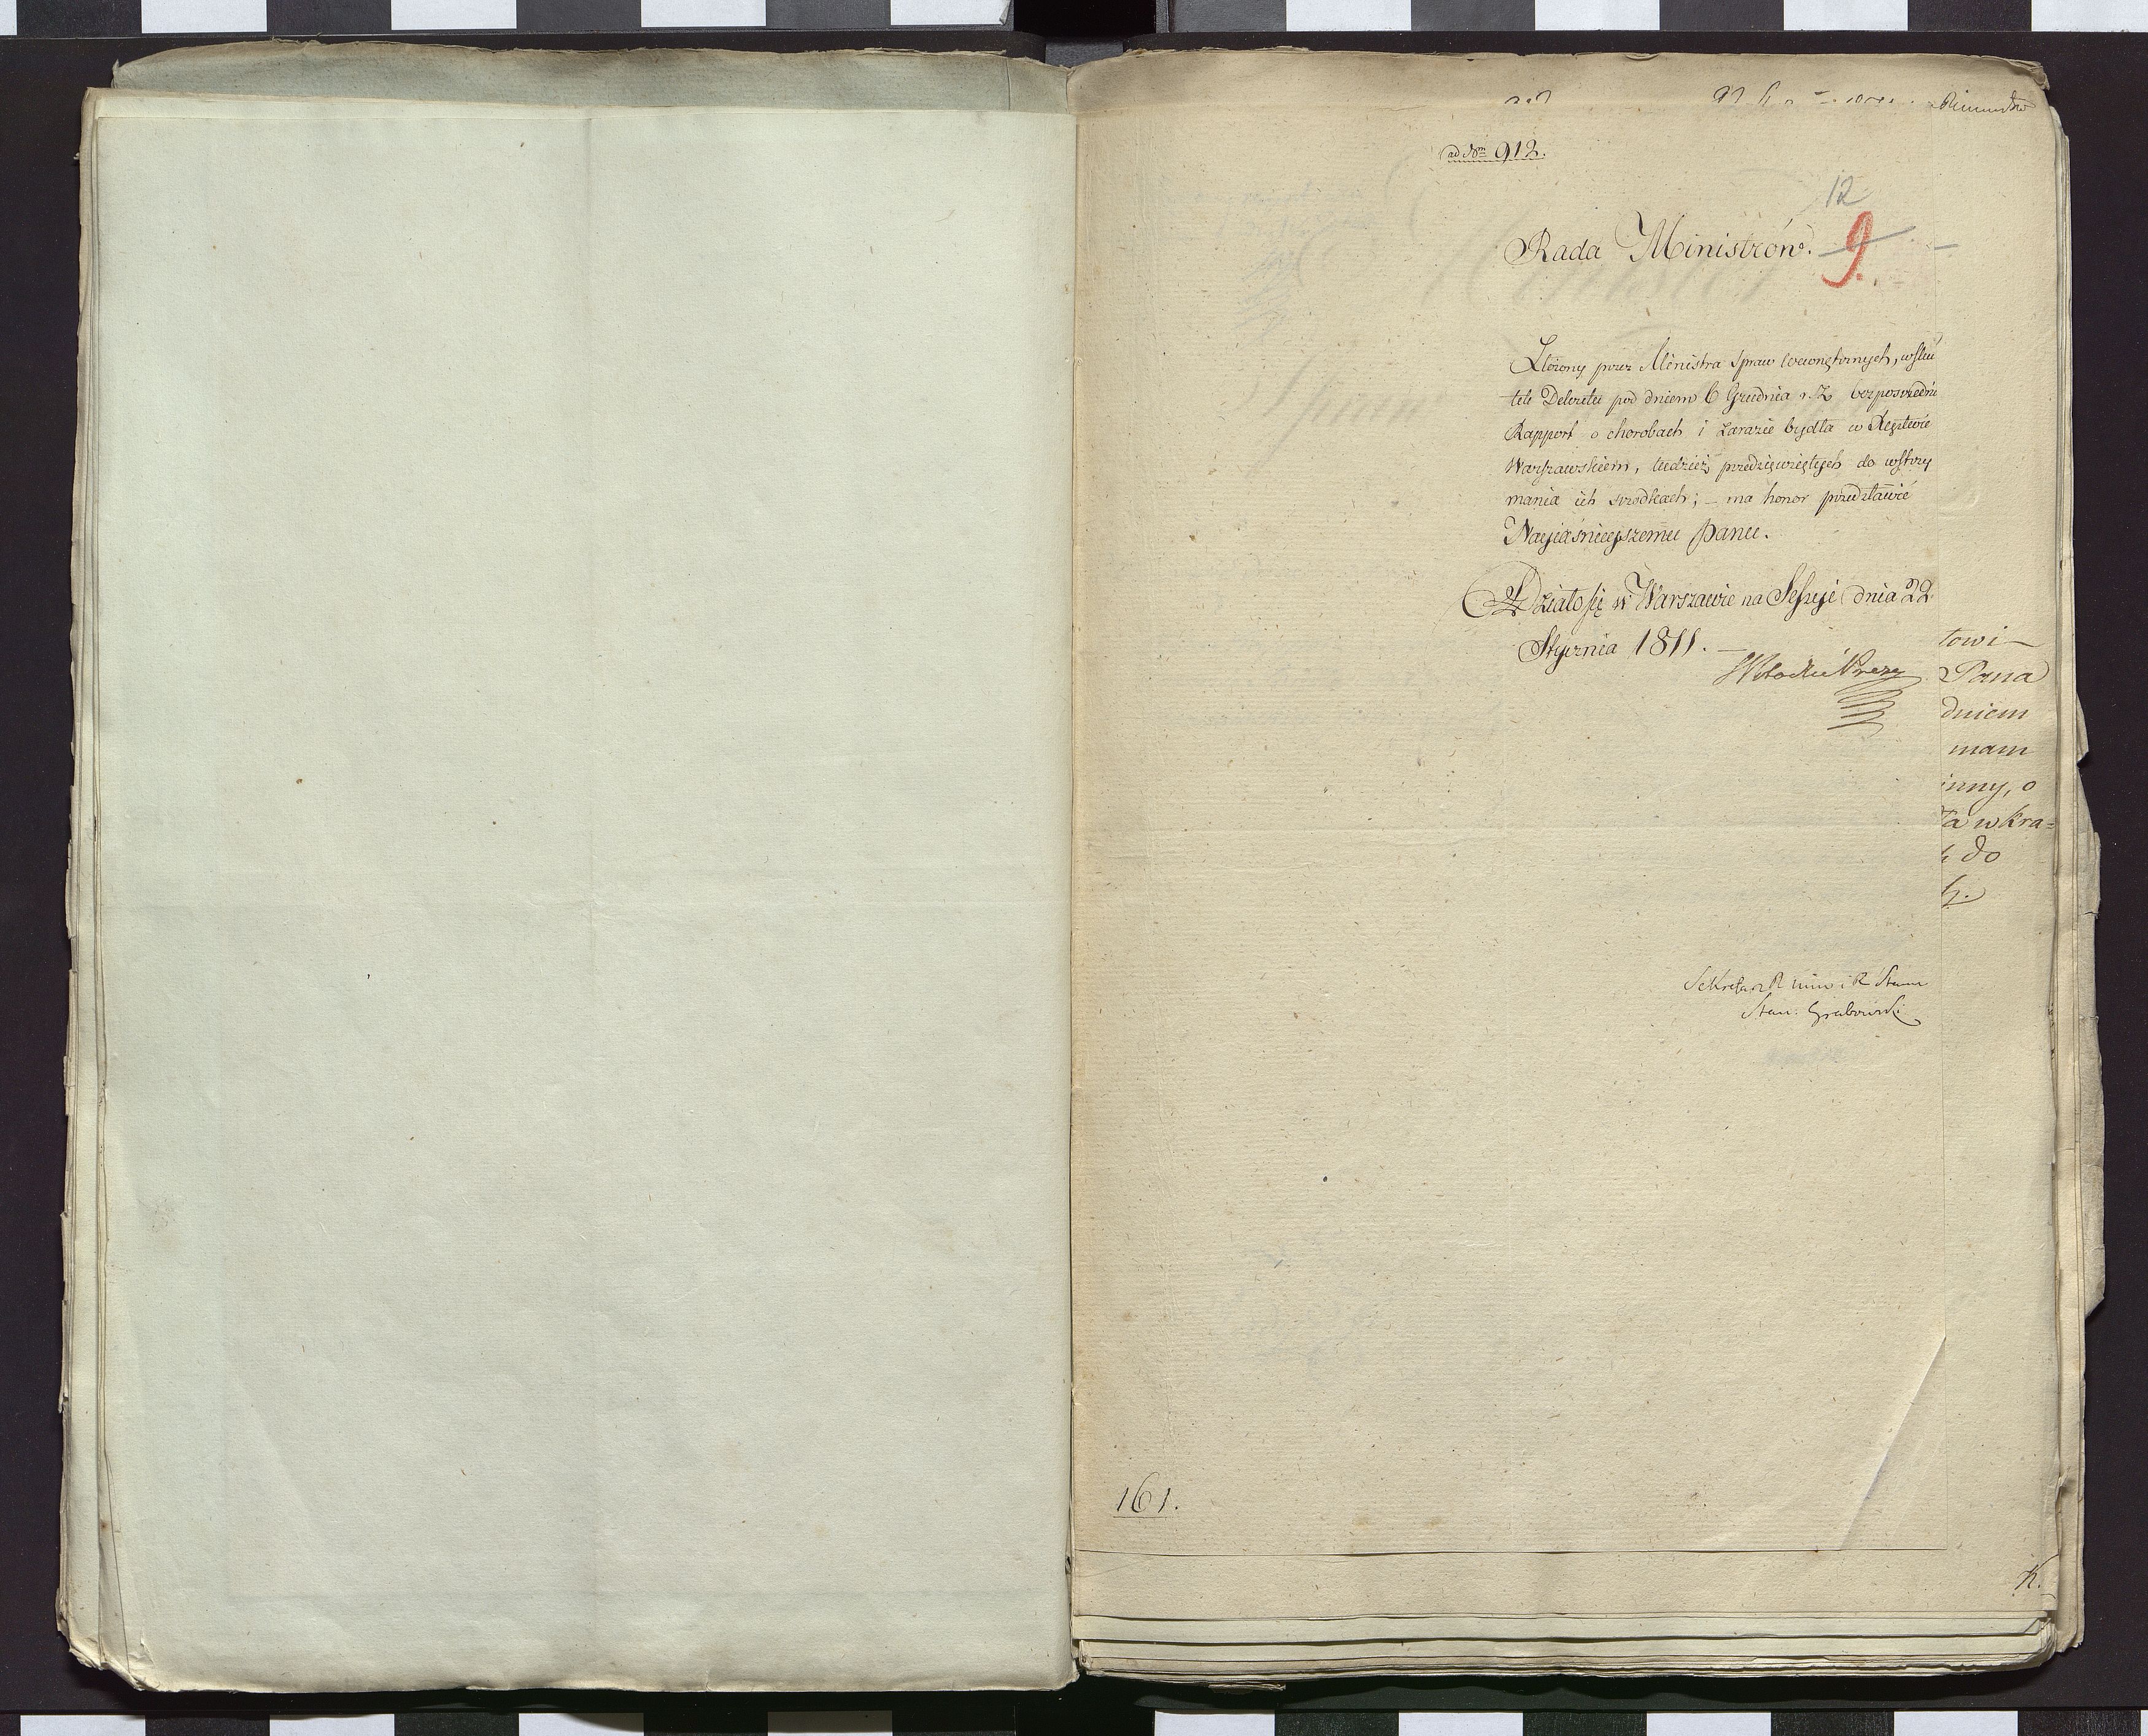 ad Nrm 912.
12
Rada Ministrów. 9.
Złożony przez Ministra Spraw Wewnętrznych, w sku
tek Dekretu pod dniem 6 Grudnia r. z. bezpośredni
Rapport o chorobach i zarazie bydła w Xięztwie
Warszawskiem, tudzież przedsięwziętych do wstrzy
mania ich srodkach; – ma honor przedstawić
Nayiaśnieyszemu Panu.
Działo się w Warszawie na Sessyi dnia 22
Stycznia 1811. –
towi –
Pana
dniem
mam
inny, o
ta w kra=
do
Sekretarz R Min i R Stanu
Stan: Grabowski
161.